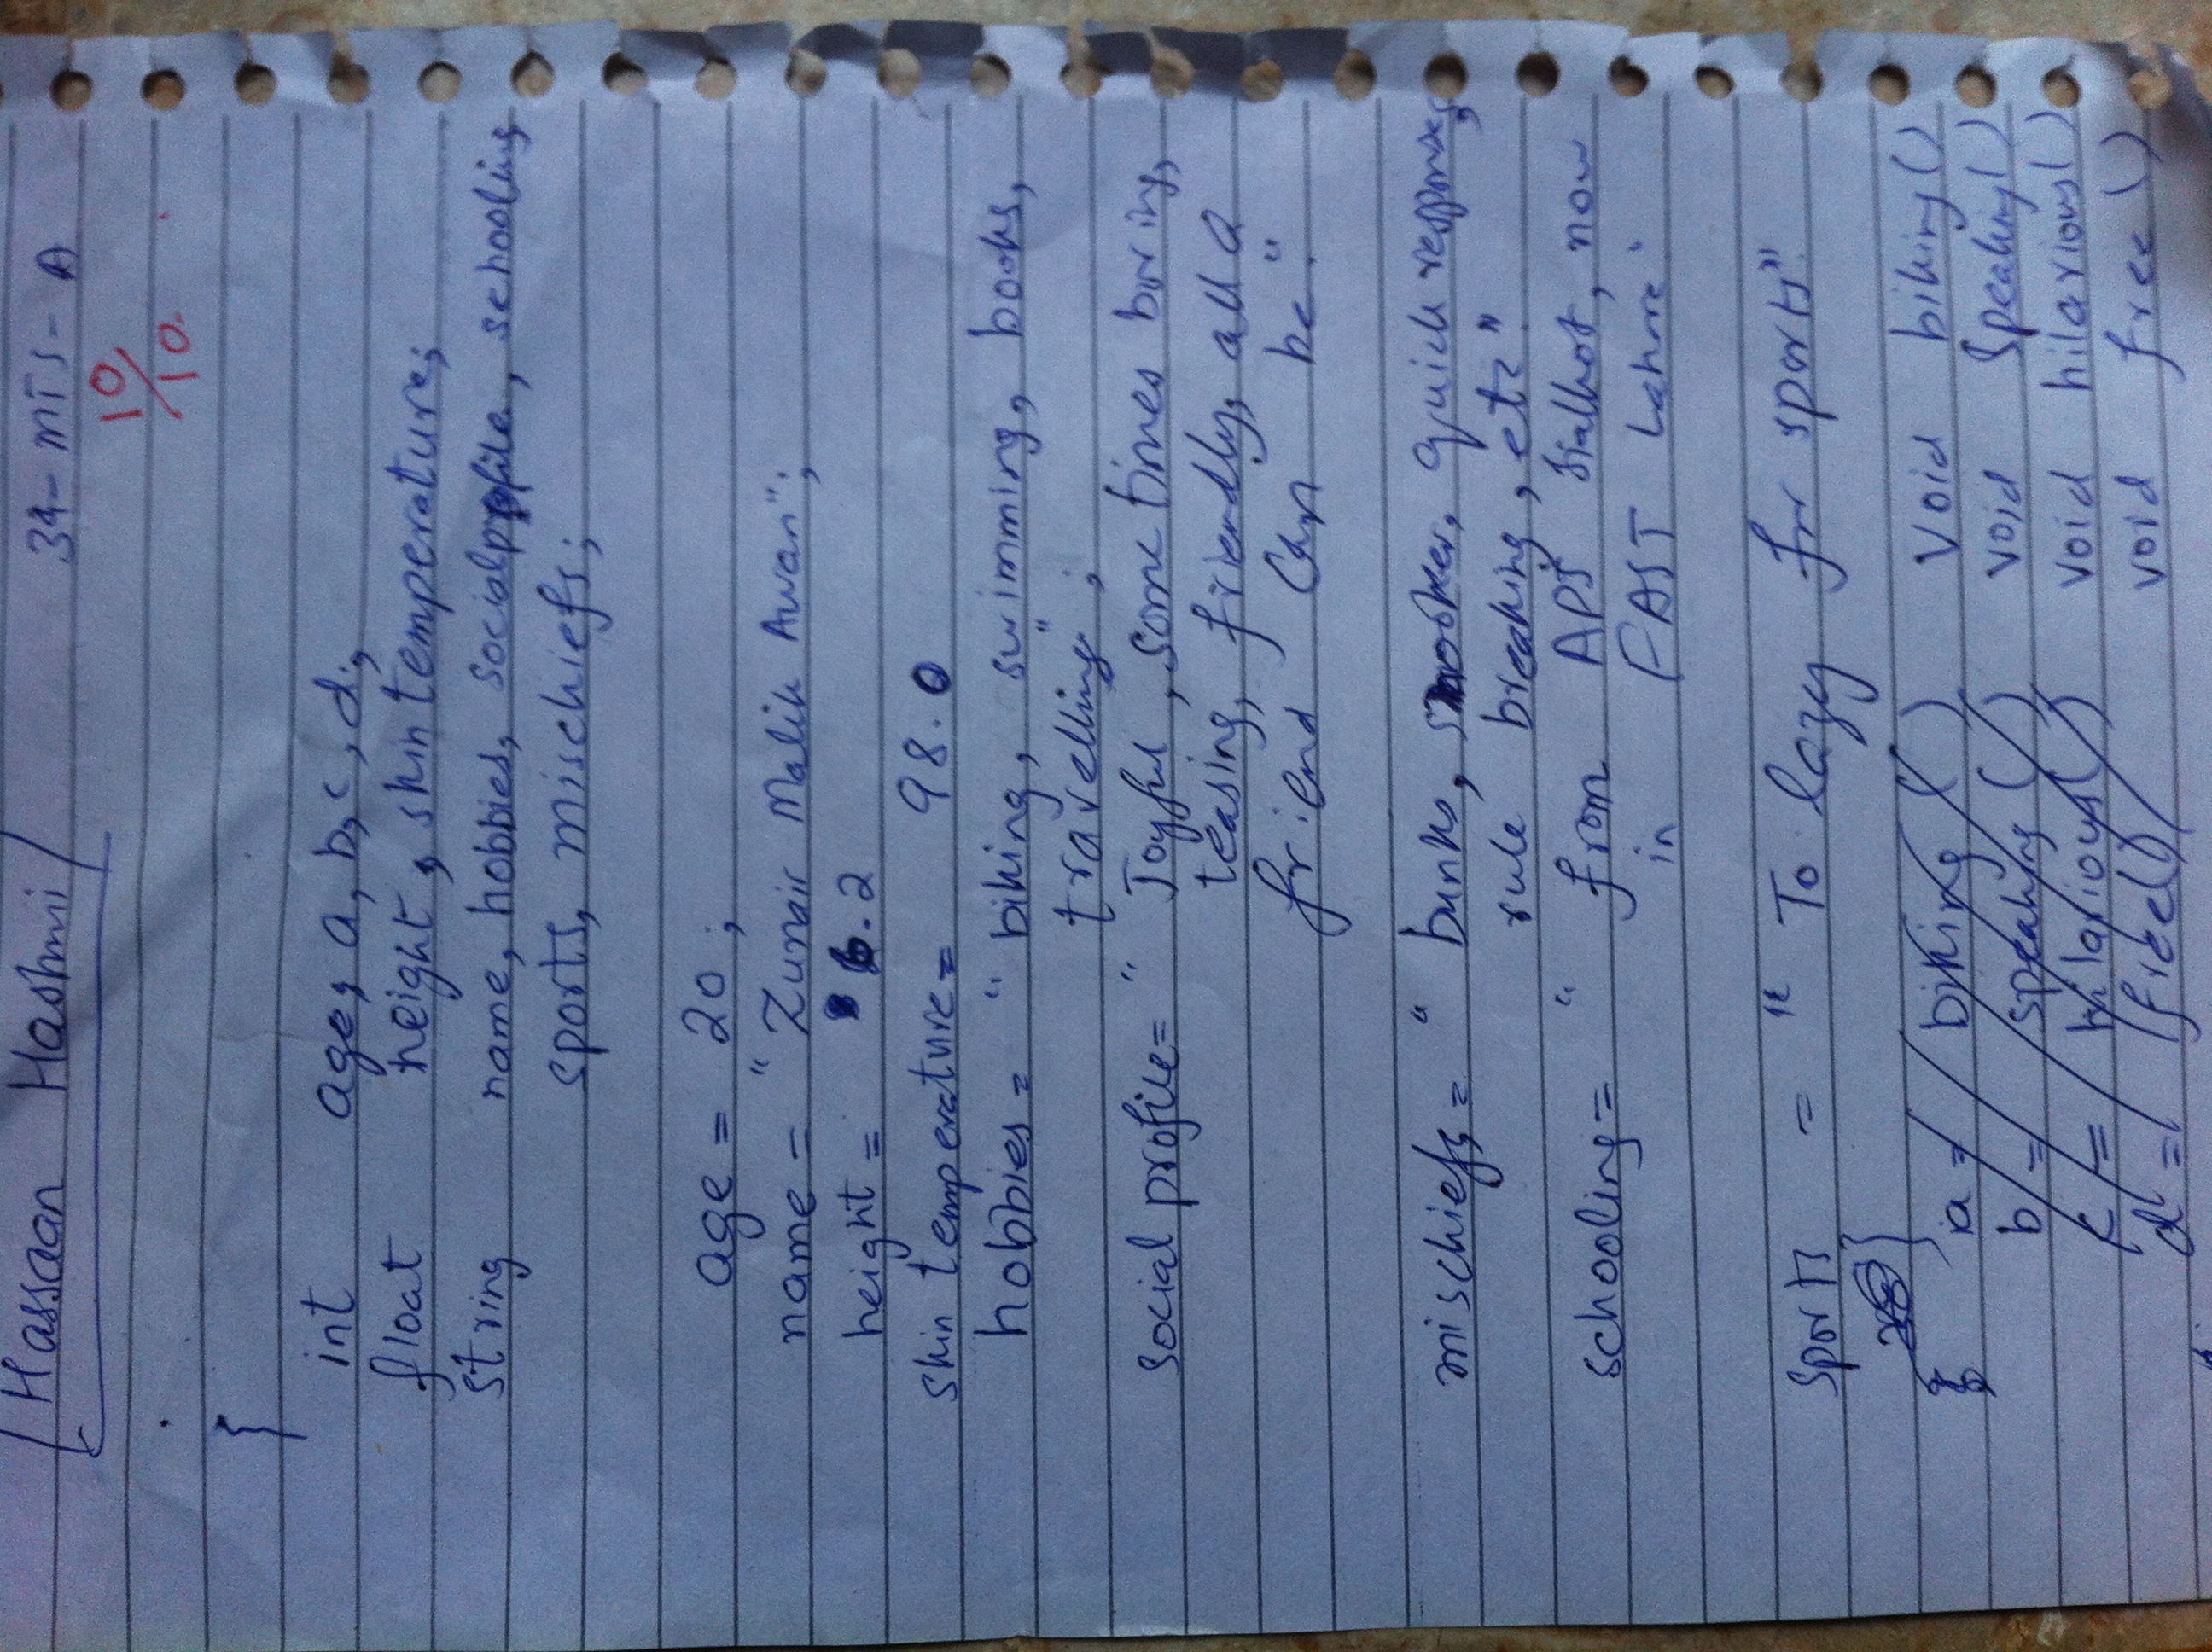 Hassaan Hashmi 34-MTS-A
10/10
{
int age, a, b, c, d;
float height, skin temperature;
string name, hobbies, socialprofile, schooling,
sports, mischiefs;
age = 20;
name = "Zunair Malik Awan";
height = 6.2
skin temperature = 98.0
hobbies = "biking, swimming, books,
travelling";
social profile = "Joyful, some times boring,
teasing, friendly, all a
friend can be"
mischiefs = "bunks, snooker, quick responses,
rule breaking, etc"
schooling = "from APS Sialkot, now
in FAST Lahore"
sports = "To lazy for sports"
}
{ a = biking () void biking()
b = speaking () void speaking()
c = hilarious() void hilarious()
d = free() void free()